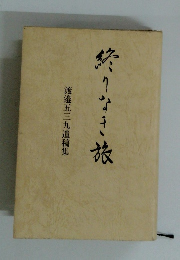 終りなき旅
五三九遺稿集